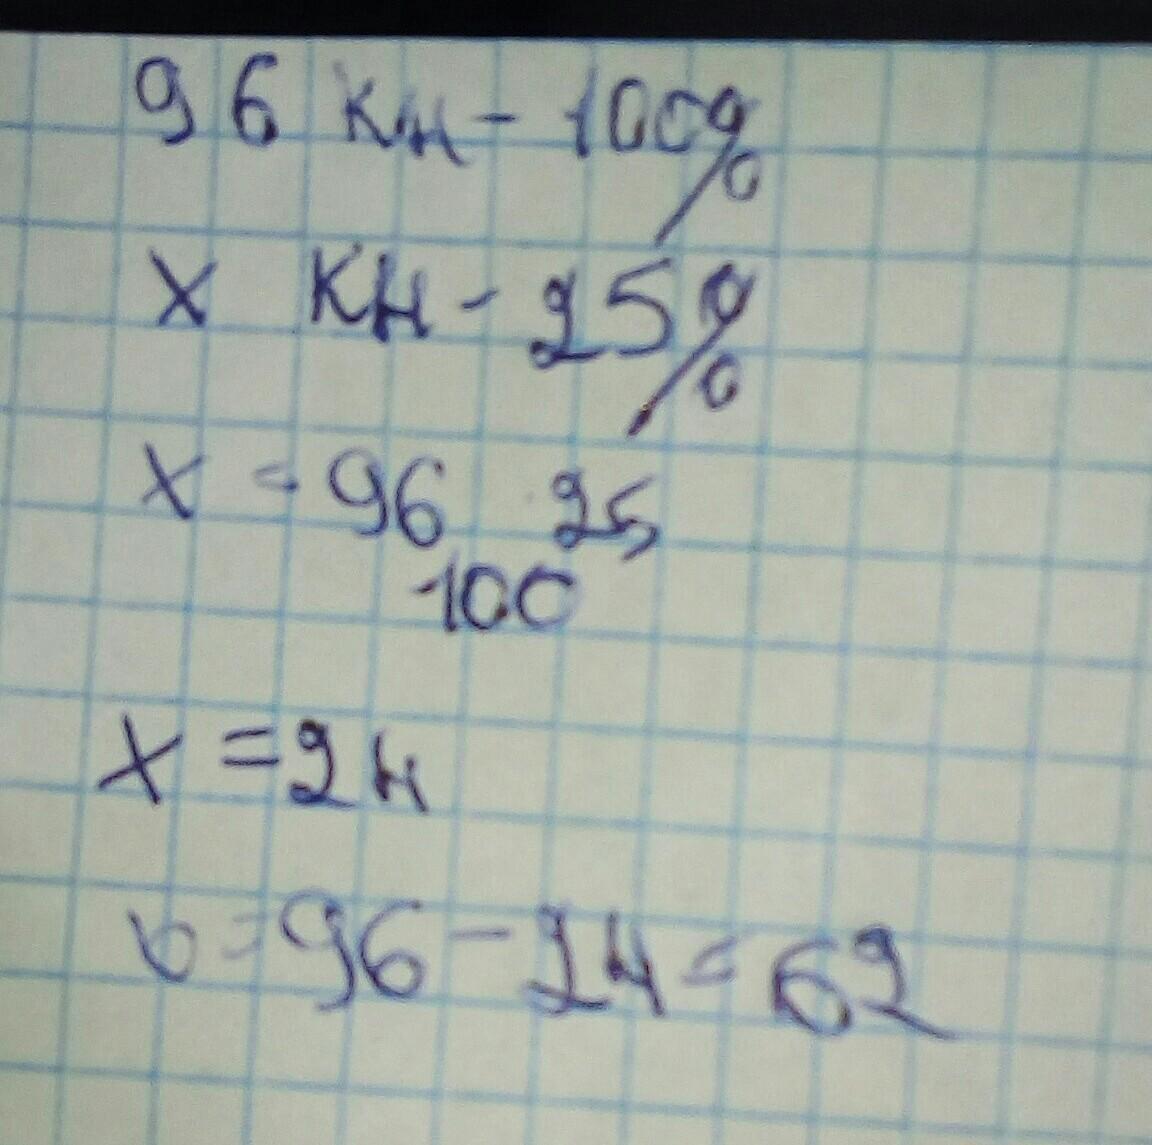 96 кн - 100%
x кн - 25%
x = 96 25
100
x = 24
в = 96 - 24 = 62